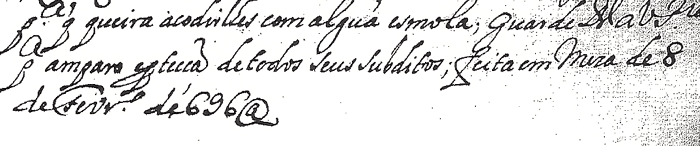 pª q queira acodirlles com algũa esmola; Guarde D
pª amparo eptecçã de todos seus subditos; feita em Mira de 8
de Fevrº de 696@